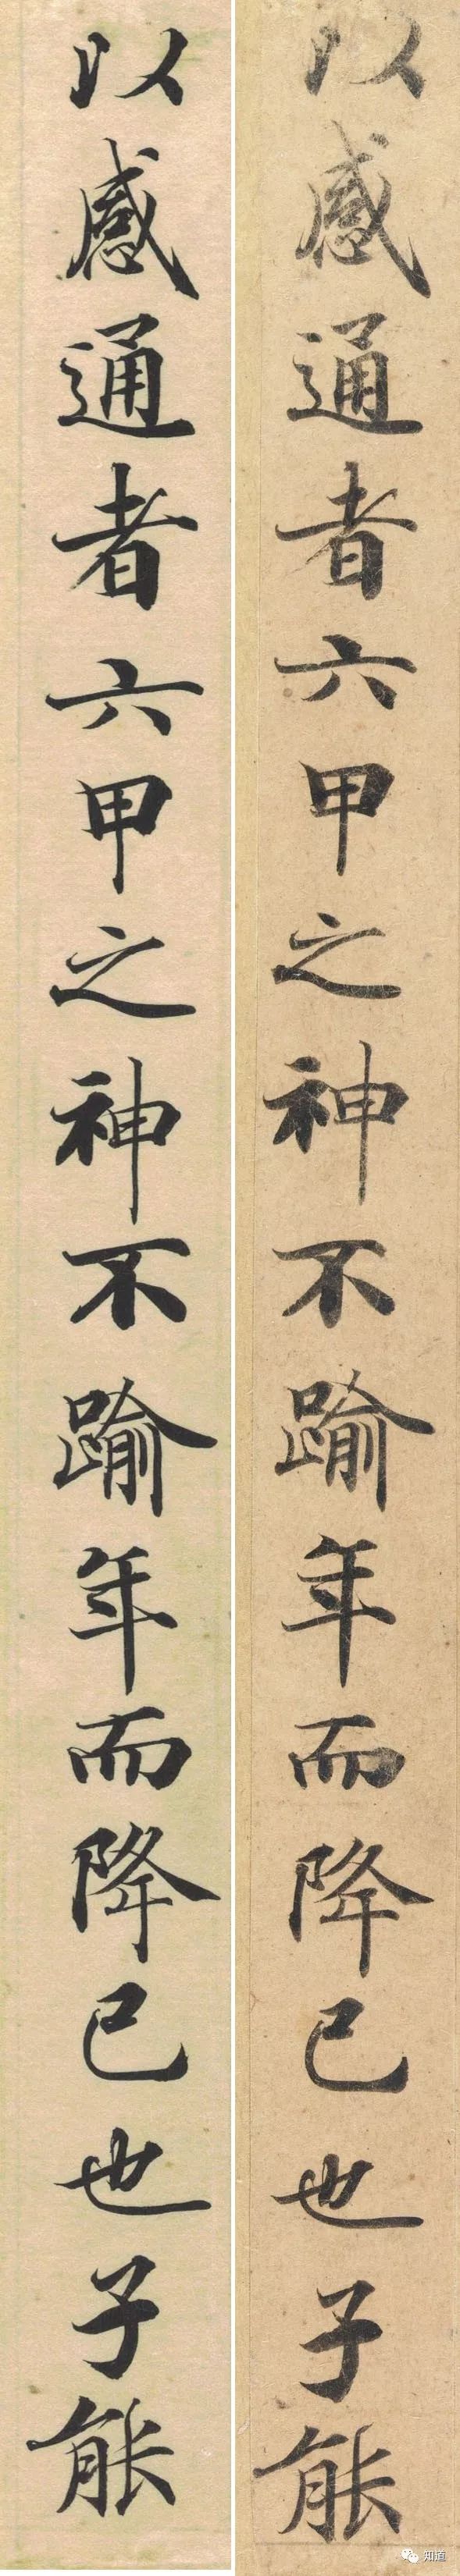 以感通者六甲之神不踰年而降己也子能
以感通者六甲之神不踰年而降己也子能
知道